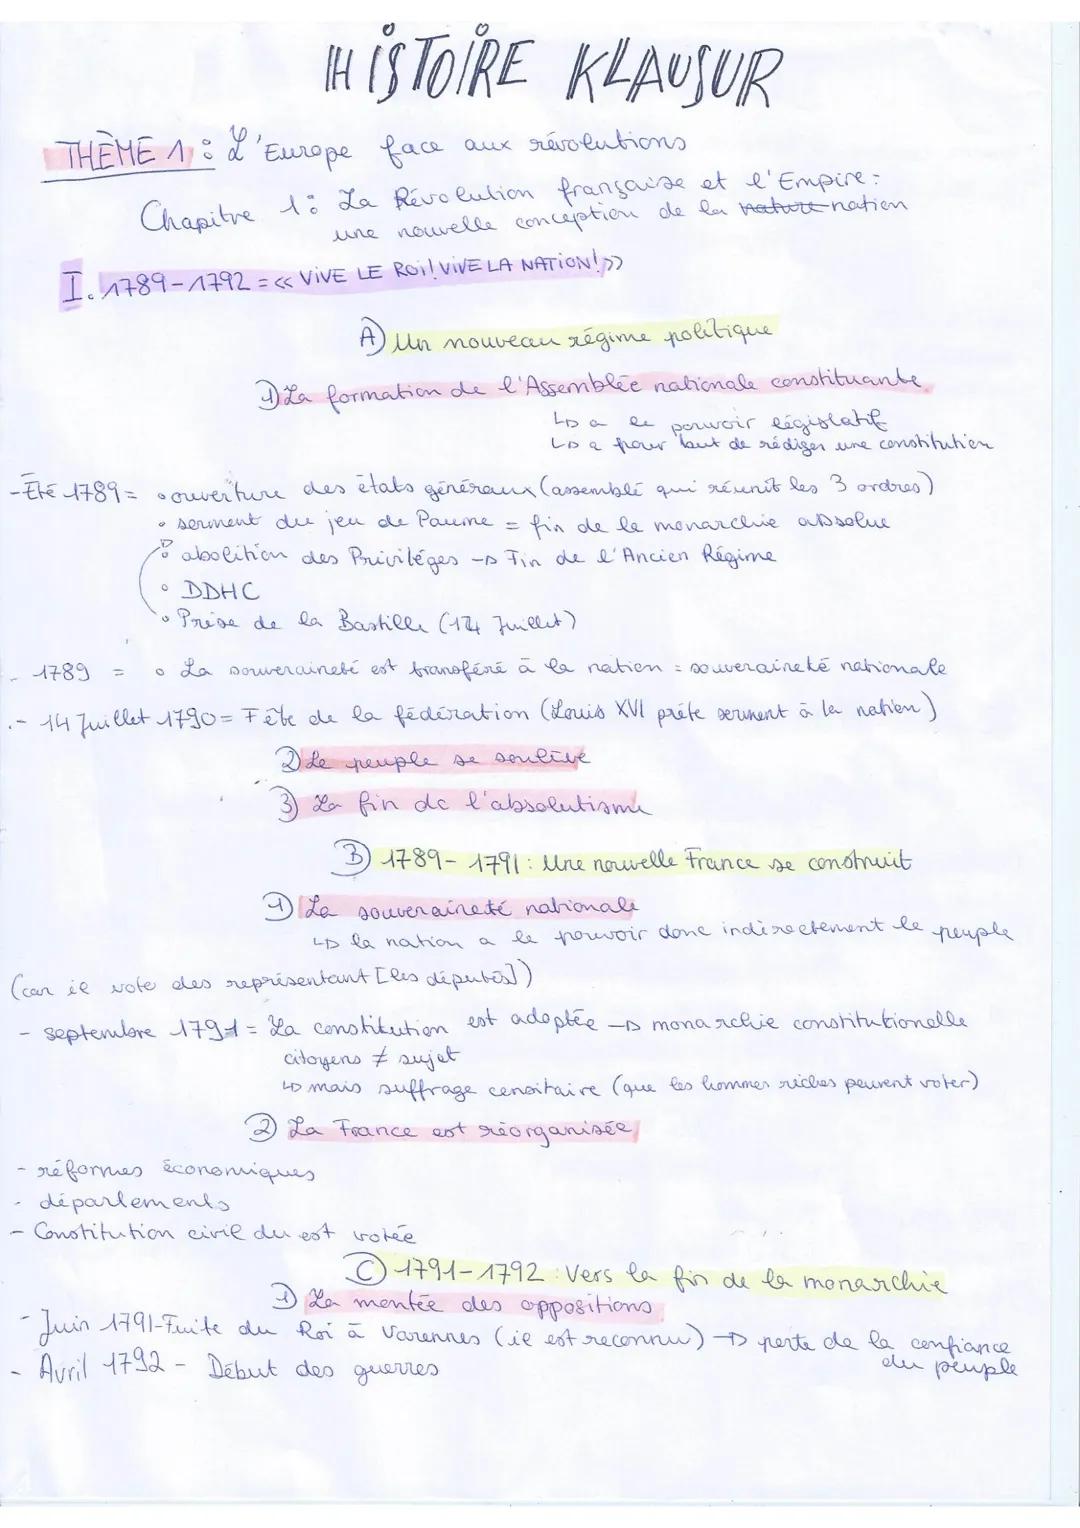 HISTOIRE KLAUSUR
THÈME 1 : L'Europe face aux révolutions
Chapitre 1 : La Révolution française et l'Empire :
une nouvelle conception de la nature nation
I. 1789-1792 = << VIVE LE ROI! VIVE LA NATION! >>
A) Un nouveau régime politique
1) La formation de l'Assemblée nationale constituante
↳ a le pouvoir législatif
↳ a pour but de rédiger une constitution
- Été 1789 = • ouverture des états généraux (assemblé qui réunit les 3 ordres)
• serment du jeu de Paume = fin de la monarchie absolue
• abolition des Priviléges → Fin de l'Ancien Régime
• DDHC
• Prise de la Bastille (14 Juillet)
- 1789 = • La souveraineté est transféré à la nation = souveraineté nationale
- 14 Juillet 1790 = Fête de la fédération (Louis XVI prête serment à la nation)
2) Le peuple se soulève
3) La fin de l'absolutisme
B) 1789 - 1791 : Une nouvelle France se construit
1) La souveraineté nationale
↳ la nation a le pouvoir donc indirectement le peuple
(car il vote des représentant [les députés])
- septembre 1791 = La constitution est adoptée → monarchie constitutionelle
citoyens ≠ sujet
↳ mais suffrage censitaire (que les hommes riches peuvent voter)
2) La France est réorganisée
- réformes économiques
- départements
- Constitution civil du est votée
C) 1791-1792 : Vers la fin de la monarchie
1) La montée des oppositions
- Juin 1791-Fuite du Roi à Varennes (il est reconnu) → perte de la confiance
du peuple
- Avril 1792 - Début des guerres